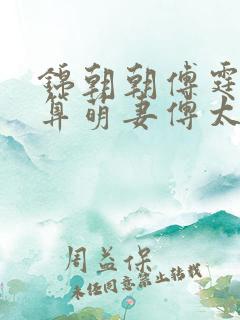 錦朝朝傅霆
算萌妻傅太
周益保
未经同意禁止转载